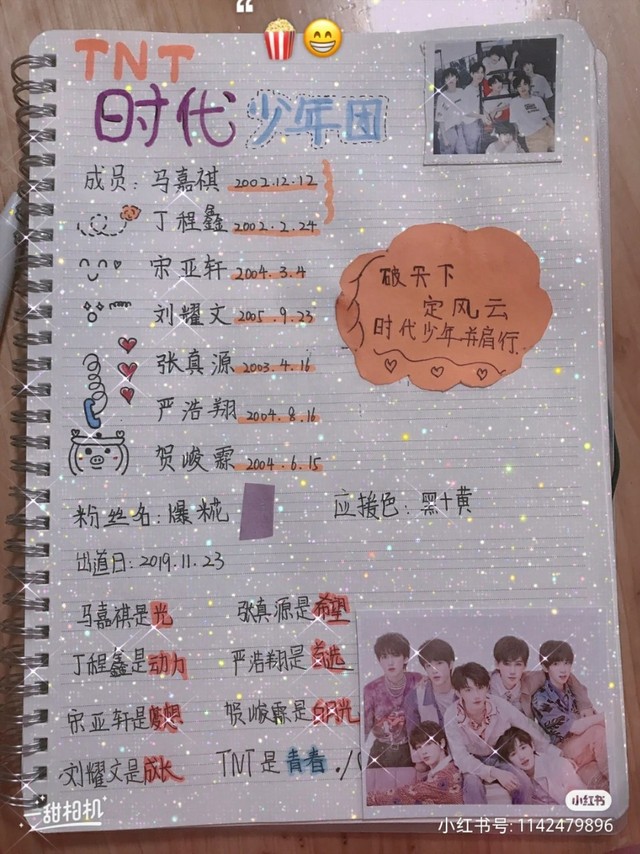 TNT
时代少年团
成员：马嘉祺 2002.12.12
丁程鑫 2002.2.24
宋亚轩 2004.3.4
刘耀文 2005.9.23
张真源 2003.4.16
严浩翔 2004.8.16
贺峻霖 2004.6.15
破天下
定风云
时代少年并肩行
粉丝名：爆米花
应援色：黑+黄
出道日：2019.11.23
马嘉祺是光 张真源是希望
丁程鑫是动力 严浩翔是首选
宋亚轩是梦想 贺峻霖是
刘耀文是成长 TNT是青春
一甜相机
小红书
小红书号：1142479896